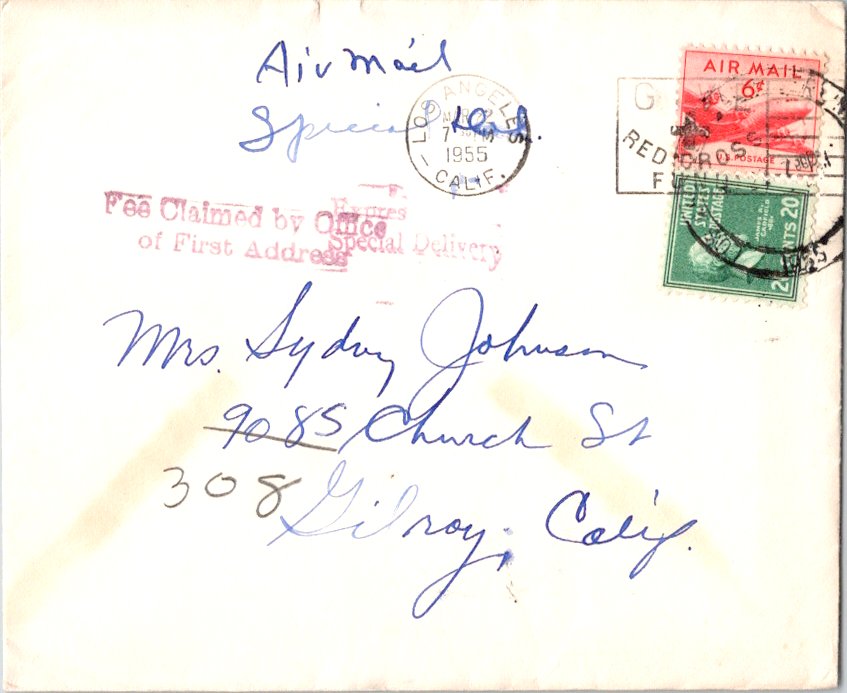 Air Mail
Special Del.
LOS ANGELES
MAR
7 PM
1955
CALIF.
G
RED CROSS
AIR MAIL
6¢
U.S. POSTAGE
UNITED STATES POSTAGE
JAMES A. GARFIELD
CENTS 20
1955
Fee Claimed by Office
of First Address
Expres
Special Delivery
Mrs. Sydney Johnson
9085 Church St
308
Gilroy, Calif.